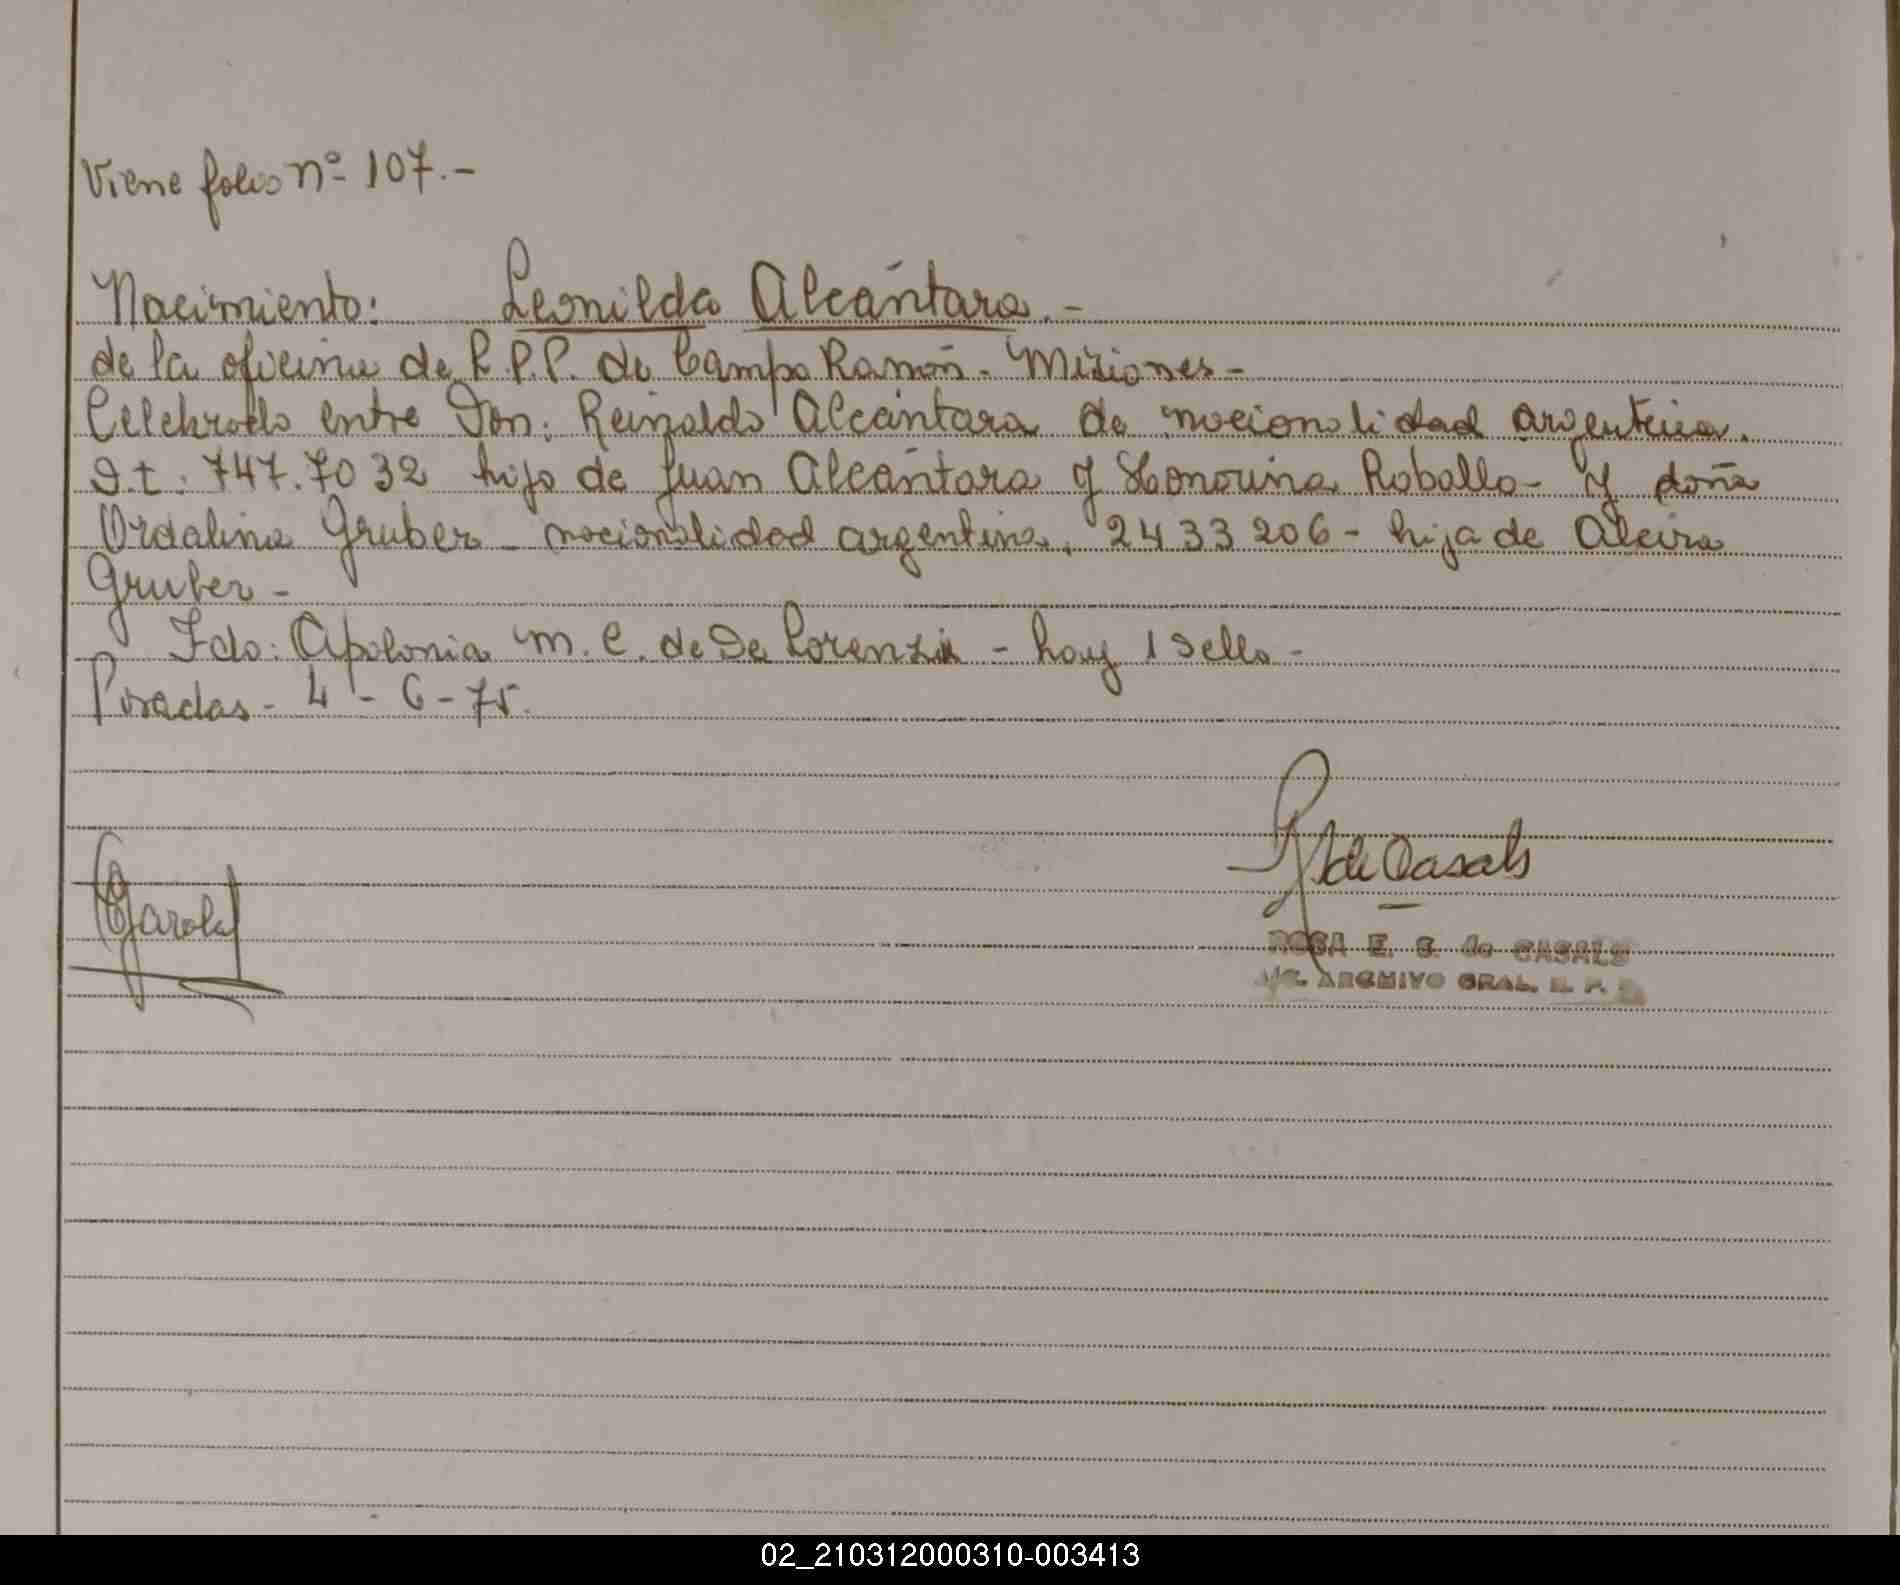 Viene folio nº 107.-
Nacimiento: Leonilda Alcántara.-
de la oficina de R.P.P. de Campo Ramón. Misiones-
Celebrado entre Don: Reinaldo Alcántara de nacionalidad argentina.
I.t. 747.7032 hijo de Juan Alcántara y Honorina Roballo- y doña
Ordalina Gruber - nacionalidad argentina. 2433206 - hija de Alcira
Gruber -
Fdo: Apolonia M. C. de De Lorenzi - hay 1 sello -
Posadas - 4 - 6 - 75.
de Casals
Garola
ROSA E. S. de CASALS
ARCHIVO GRAL. R. P.
02_210312000310-003413